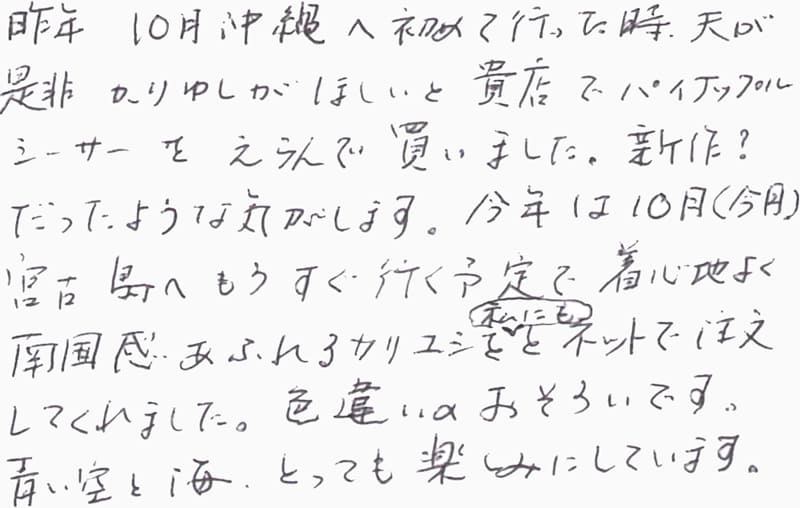 昨年 10月沖縄へ初めて行った時、夫が
是非かりゆしがほしいと貴店でパイナップル
シーサーをえらんで買いました。新作?
だったような気がします。今年は10月(今月)
宮古島へもうすぐ行く予定で着心地よく
南国感あふれるカリユシを私にもとネットで注文
してくれました。色違いのおそろいです。
青い空と海、とっても楽しみにしています。